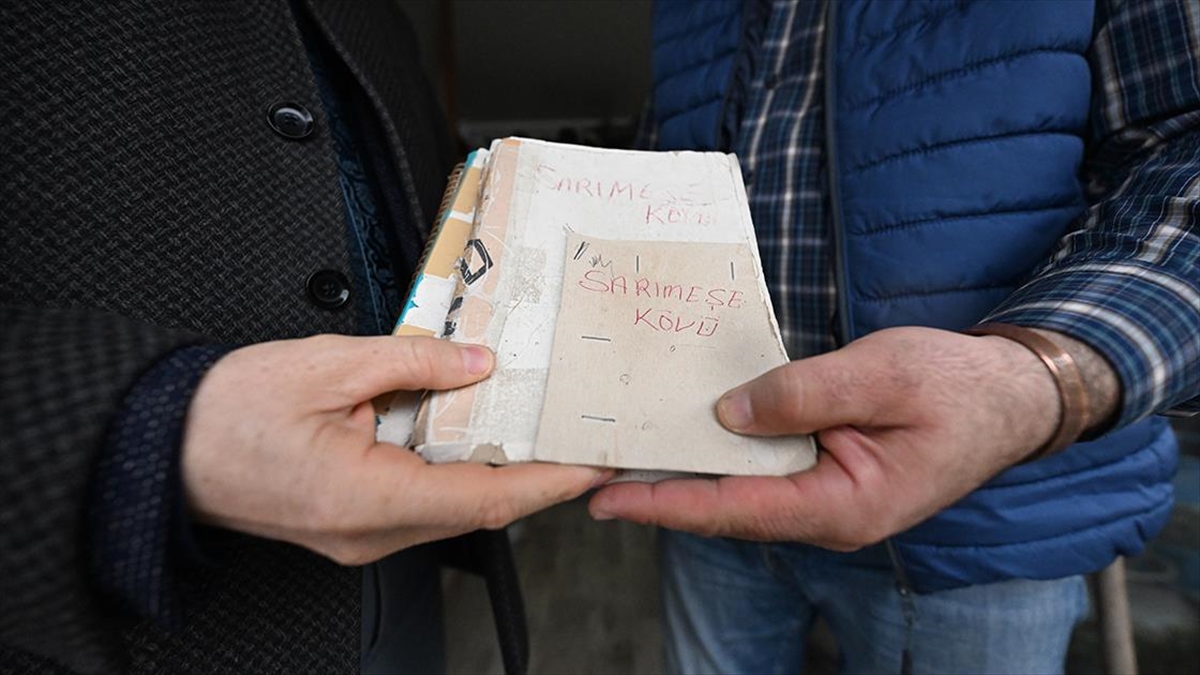 SARIMEŞE
KÖYÜ
SARIMEŞE
KÖYÜ